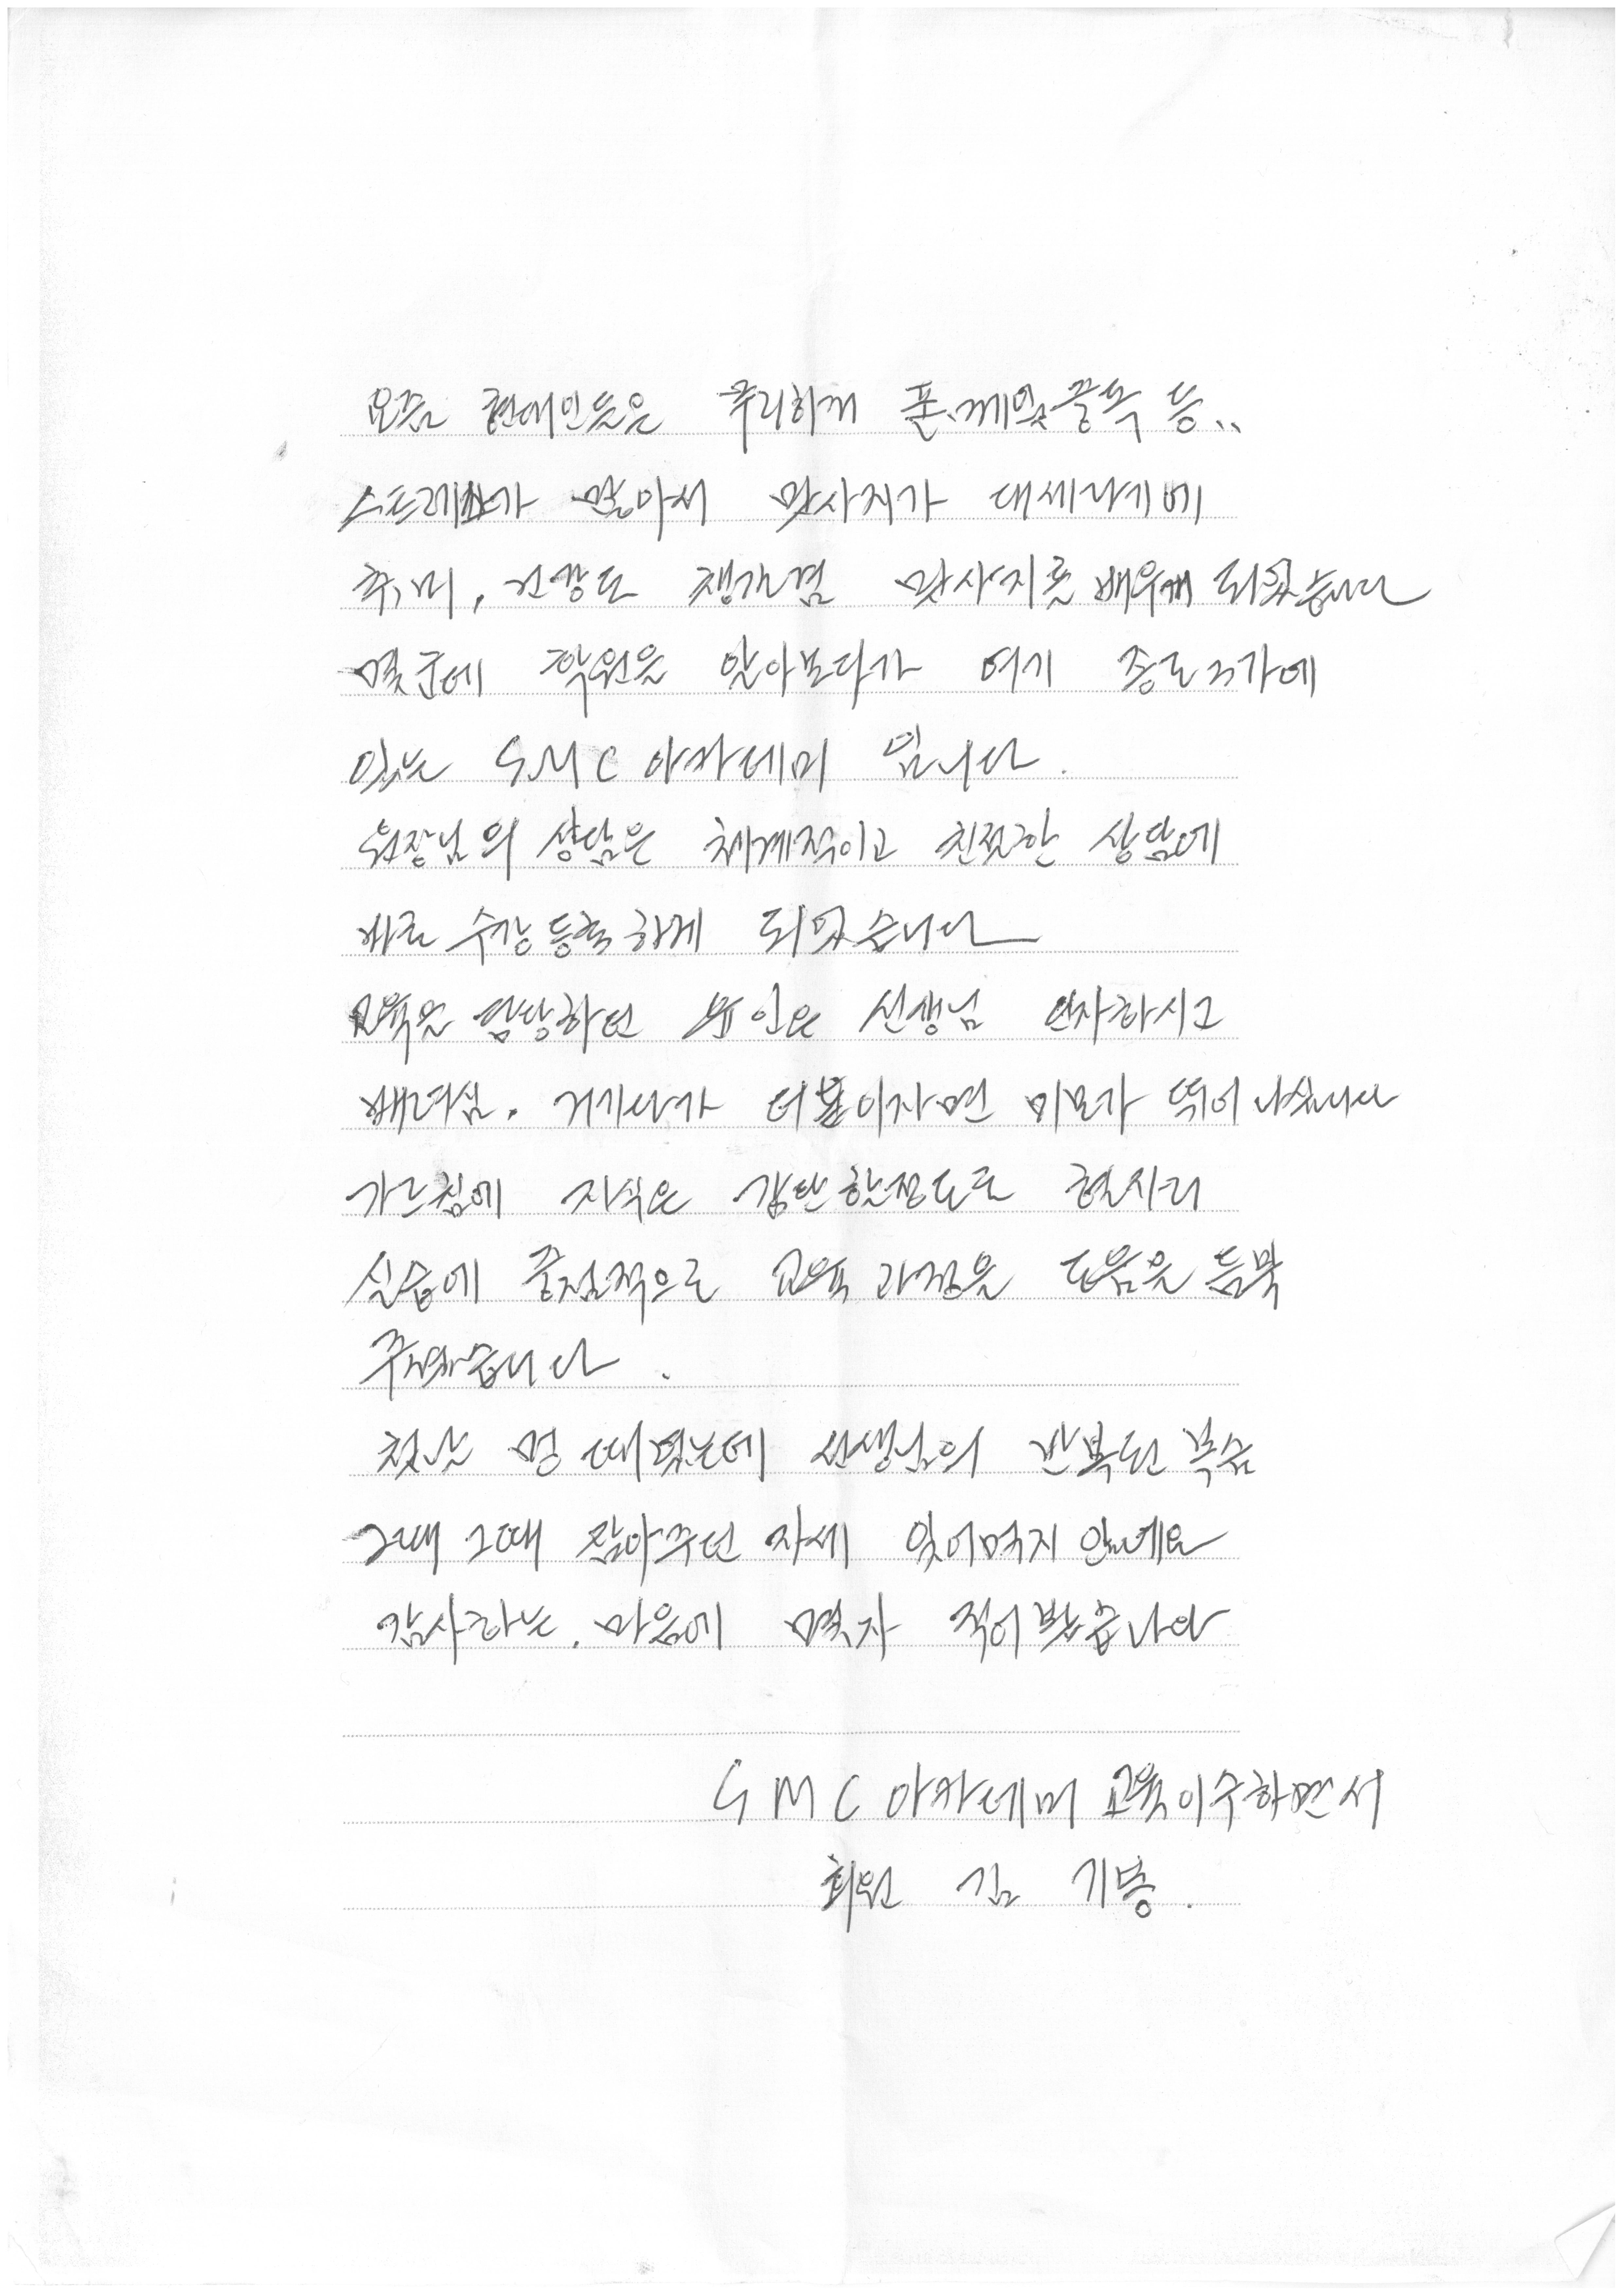 요즘 현대인들은 무리하게 폰.게임 중독 등..
스트레스가 많아서 맛사지가 대세라기에
취미, 건강도 챙길겸 맛사지를 배우게 되었습니다
몇군데 학원을 알아보다가 여기 종로3가에
있는 SMC 아카데미 입니다.
원장님의 상담은 체계적이고 친절한 상담에
바로 수강 등록하게 되었습니다
교육을 담당하던 선생님 인자하시고
배려심. 거기다가 더 붙이자면 미모가 뛰어나십니다
가르침에 지식은 감탄할정도로 현시리
실습에 중점적으로 교육과정을 도움을 듬뿍
주셨습니다.
첫날 멍 때렸는데 선생님의 반복된 복습
그때 그때 잡아주던 자세 잊어먹지 않네요
감사하는. 마음에 몇자 적어봤습니다
SMC 아카데미 교육이수하면서
회원 김 기봉.